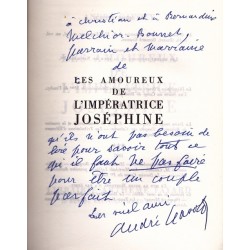 à Christian et à Bernardin
Melchior-Bonnet,
Parrain et Marraine
de
LES AMOUREUX
DE
L'IMPÉRATRICE
JOSÉPHINE
qu'ils n'ont pas besoin de
lire pour savoir tout ce
qu'il faut ne pas faire
pour être un couple
parfait
Leur vieil ami
André Castelot